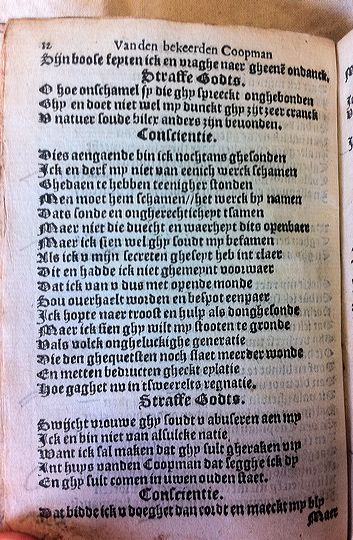 12 Van den bekeerden Coopman
Hijn boose septen ick en vraghe naer gheenē ondanck.
Straffe Godts.
O hoe onschamel sy die ghy spreeckt onghebonden
Ghy en doet niet wel my dunckt ghy zijt zeer cranck
V natuer soude bilcx anders zijn bevonden.
Conscientie.
Dies aengaende bin ick nochtans ghesonden
Ick en derf my niet van eenich werck schamen
Ghedaen te hebben teenigher stonden
Men moet hem schamen//het werck by namen
Dats sonde en ongherechticheyt tsamen
Maer niet die duecht en waerheyt dits openbaer
Maer ick sien wel ghy soudt my befamen
Als ick v mijn secreten gheseyt heb int claer
Dit en hadde ick niet ghemeynt voorwaer
Dat ick van v dus met opende monde
Sou overhaelt worden en bespot eenpaer
Ick hopte naer troost en hulp als donghesonde
Maer ick sien ghy wilt my stooten te gronde
Vals volck ongheluckighe generatie
Die den ghequetsten noch slaet meerder wonde
En metten bedructen gheckt eplatie
Hoe gaghet nv in tsweerelts regnatie.
Straffe Godts.
Swijcht vrouwe ghy soudt v abuseren aen my
Ick en bin niet van alsulcke natie
Want ick sal maken dat ghy sult gheraken vry
Int huys vanden Coopman dat segghe ick dy
En ghy sult comen in uwen ouden staet.
Conscientie.
Dat bidde ick v doeghet dan cordt en maeckt my bly
Maer